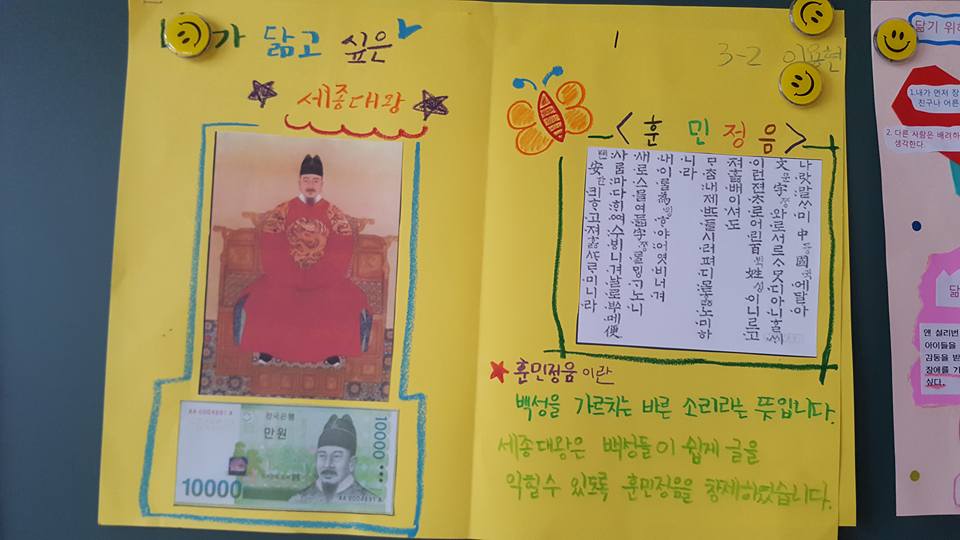 내가 닮고 싶은
세종대왕
AA 0004691 A
한국은행
만원
10000
10000
AA 0004691 A
1
3-2 이용현
<훈민정음>
나랏말ᄊᆞ미 中듕國귁에달아
文문字ᄍᆞᆼ와로서르ᄉᆞᄆᆞᆺ디아니ᄒᆞᆯᄊᆡ
이런젼ᄎᆞ로어린百ᄇᆡᆨ姓셩이니르고
져ᄒᆞᇙ배이셔도
ᄆᆞᄎᆞᆷ내제ᄠᅳ들시러펴디몯ᄒᆞᇙ노미하
니라
내이ᄅᆞᆯ爲윙ᄒᆞ야어엿비너겨
새로스믈여듧字ᄍᆞᆼᄅᆞᆯᄆᆡᇰᄀᆞ노니
사ᄅᆞᆷ마다ᄒᆡᅇᅧ수ᄫᅵ니겨날로ᄡᅮ메便
뼌安ᅙᅡᆫ킈ᄒᆞ고져ᄒᆞᇙᄯᆞᄅᆞ미니라
훈민정음이란
백성을 가르치는 바른 소리라는 뜻입니다.
세종대왕은 백성들이 쉽게 글을
익힐수 있도록 훈민정음을 창제하였습니다.
닮기 위하
1.내가 먼저 장
친구나 어른
2. 다른 사람은 배려하
생각한다.
닮
앤 설리번
아이들을
감동을 받
장애를 가
싶다.